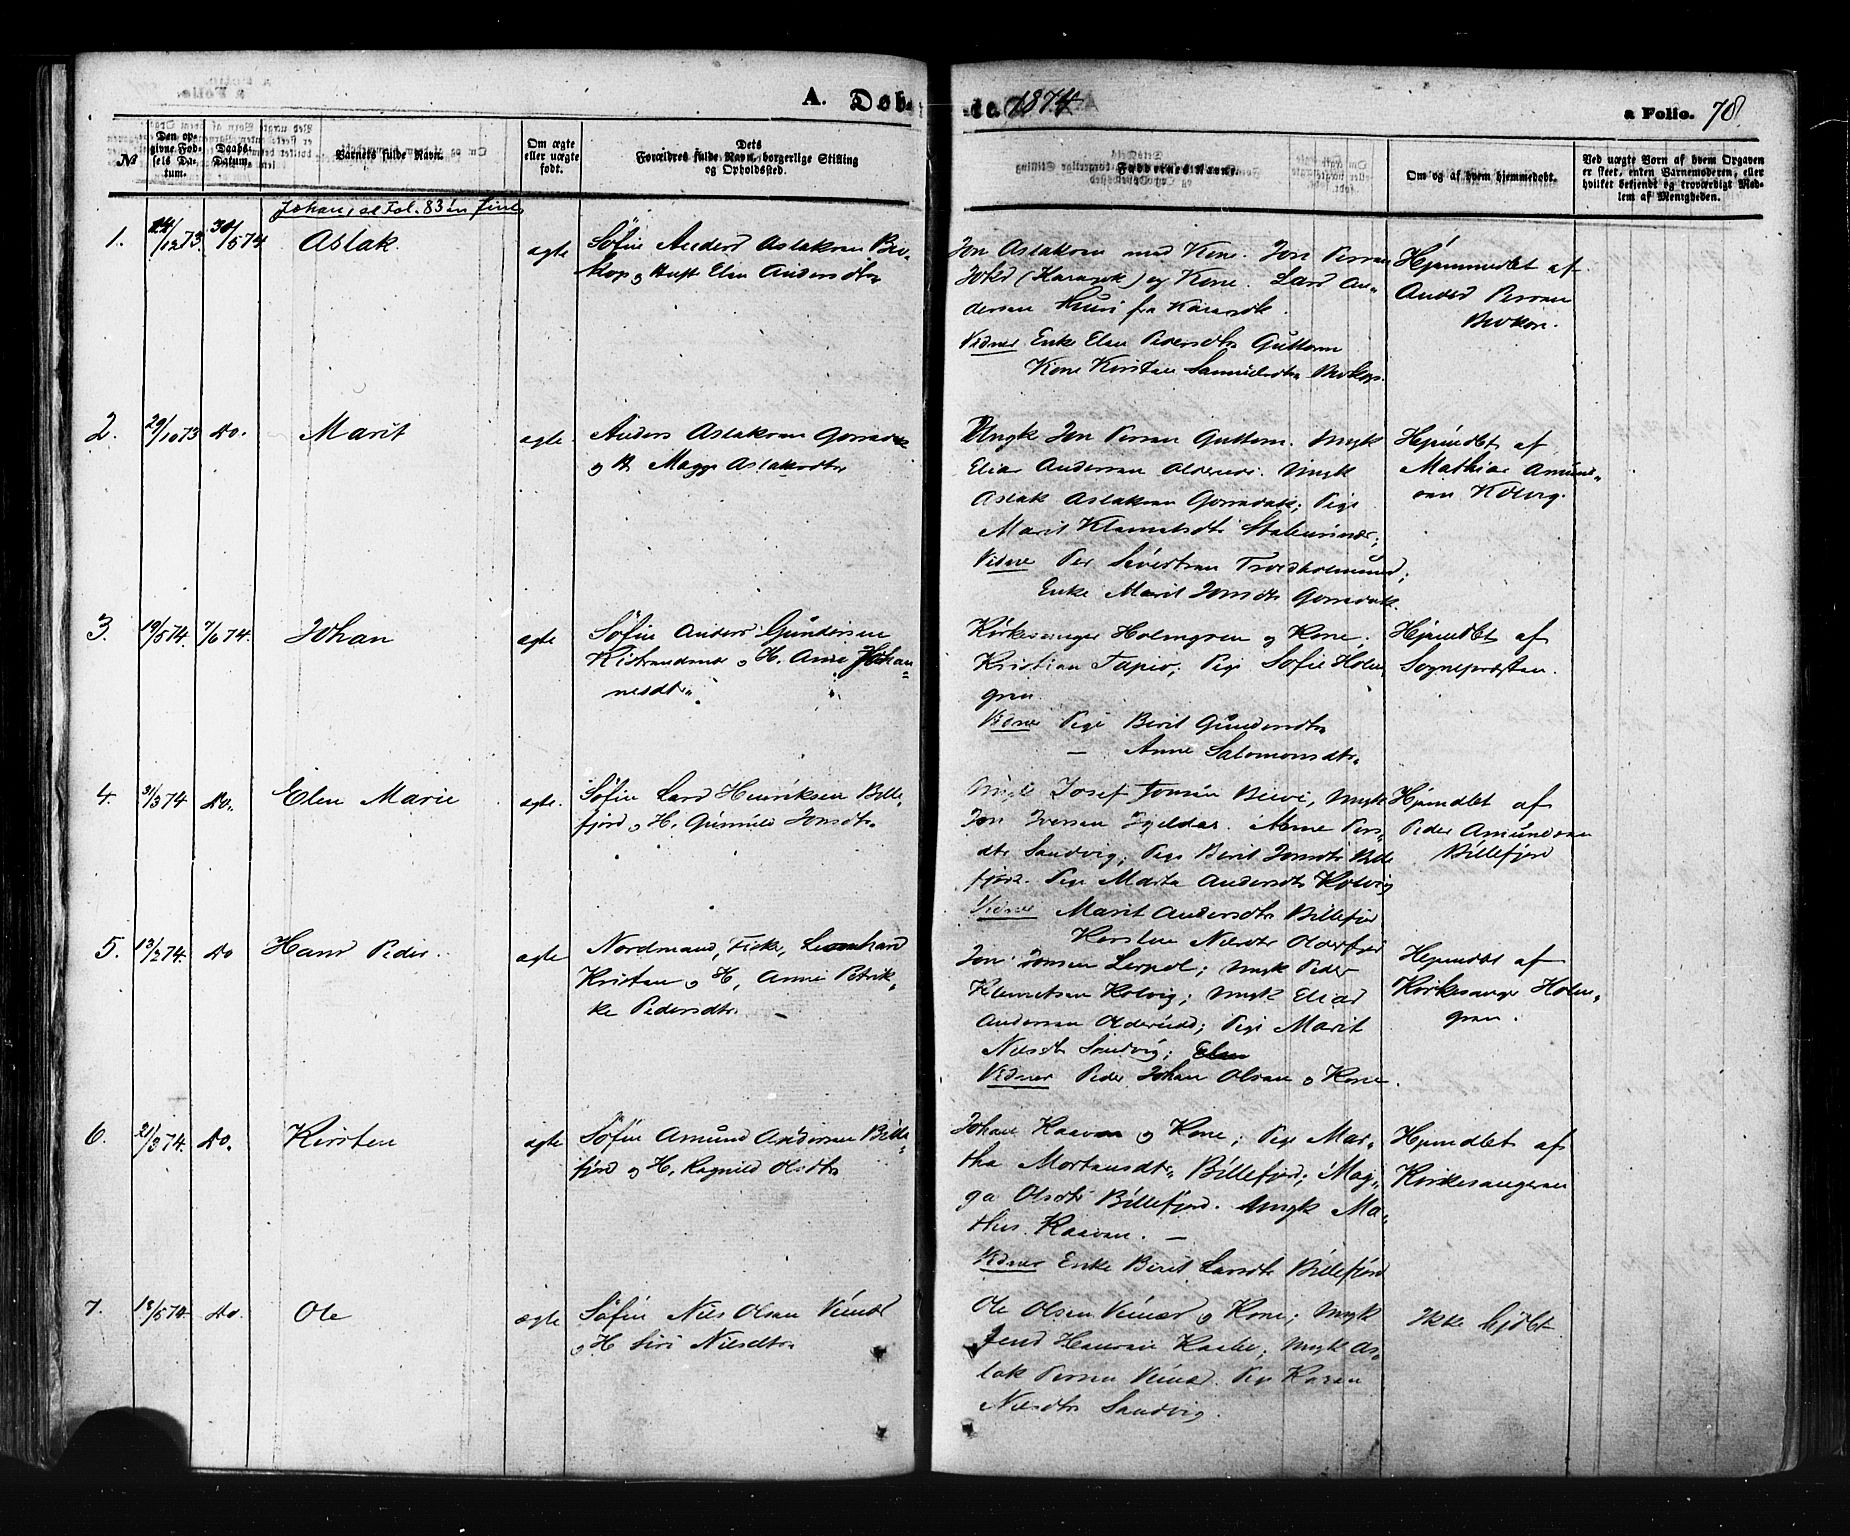 A. Døb-
te. 1874
a Folio. 78.
№
Den op-
givne Fød-
sels Da-
tum.
Daabs-
Datum.
Barnets fulde Navn.
Om ægte
eller uægte
født.
Dets
Forældres fulde Navn, borgerlige Stilling
og Opholdssted.
Faddernes Navne.
Om og af hvem hjemmedøbt.
Ved uægte Børn af hvem Opgaven
er skeet, enten Barnemoderen, eller
hvilket bekjendt og troværdigt Med-
lem af Menigheden.
1.
/12 73.
/5 74
Aslak
ægte
Søfin Anders Aslaksen
og Hust Elen Andersdtr
Jon Aslaksen med Kone. Jon Persen
(Karasjok) og Kone. Lars An-
dersen fra Karasjok.
Vidner Enke Elen Pedersdtr Guttorm
Kone Kirsten Samuelsdtr
Hjemmedbt af
Anders Persen
2.
29/10 73
do.
Marit
ægte
Anders Aslaksen
og H. Magga Aslaksdtr
Ungk Jon Persen Guttorm. Ungk
Elias Andersen Ungk
Aslak Aslaksen Pige
Marit Klemetsdtr
Vidne Per Sivertsen
Enke Marit Jonsdtr
Hjemdbt af
Mathias Amund-
sen Kolvig.
3.
19/5 74.
7/6 74.
Johan
ægte
Søfin Anders Gundersen
Kistrandnes og H. Anne Johan-
nesdtr
Kirkesanger Holmgren og Kone.
Kristian Tapio, Pige Sofie Holm-
gren.
Vidne Pige Berit Gundersdtr
— Anne Salomonsdtr
Hjemdbt af
Sognepræsten.
4.
31/3 74
do.
Elen Marie
ægte.
Søfin Lars Henriksen Bille-
fjord og H. Gunnild Jonsdtr
Ungk Josef Jonsen Ungk
Jon Iversen Anne Pers-
dtr Sandvig; Pige Berit Jonsdtr Bille
fjord. Pige Marta Andersdtr Kolvig
Vidner Marit Andersdtr Billefjord
Kirsten Nilsdtr Olderfjord
Hjemdbt af
Peder Amundsen
Billefjord
5.
13/2 74.
do
Hans Peder.
ægte
Nordmand, Fisker, Leonhard
Kristen og H, Anne Petrik-
ke Pedersdtr
Jon Jonsen Leirpol; Ungk Peder
Klemetsen Kolvig; Ungk Elias
Andersen Pige Marit
Nilsdtr Sandvig; Elen
Vidner Peder Johan Olsen og Kone.
Hjemdbt af
Kirkesanger Holm-
gren.
6.
21/3 74.
do.
Kirsten
ægte
Søfin Amund Andersen Bille-
fjord og H. Ragnild Olsdtr
Johan og Kone; Pige Mar-
tha Mortensdtr Billefjord; Mag-
ga Olsdtr Billefjord. Ungk Ma-
this
Vidner Enke Berit Larsdtr Billefjord
Hjemdbt af
Kirkesangeren
7.
18/5 74.
do.
Ole
ægte
Søfin Nils Olsen
og H Siri Nilsdtr
Ole Olsen og Kone; Ungk
Ungk As-
lak Persen Pige Karen
Nilsdtr Sandvig.
Ikke hjdbt